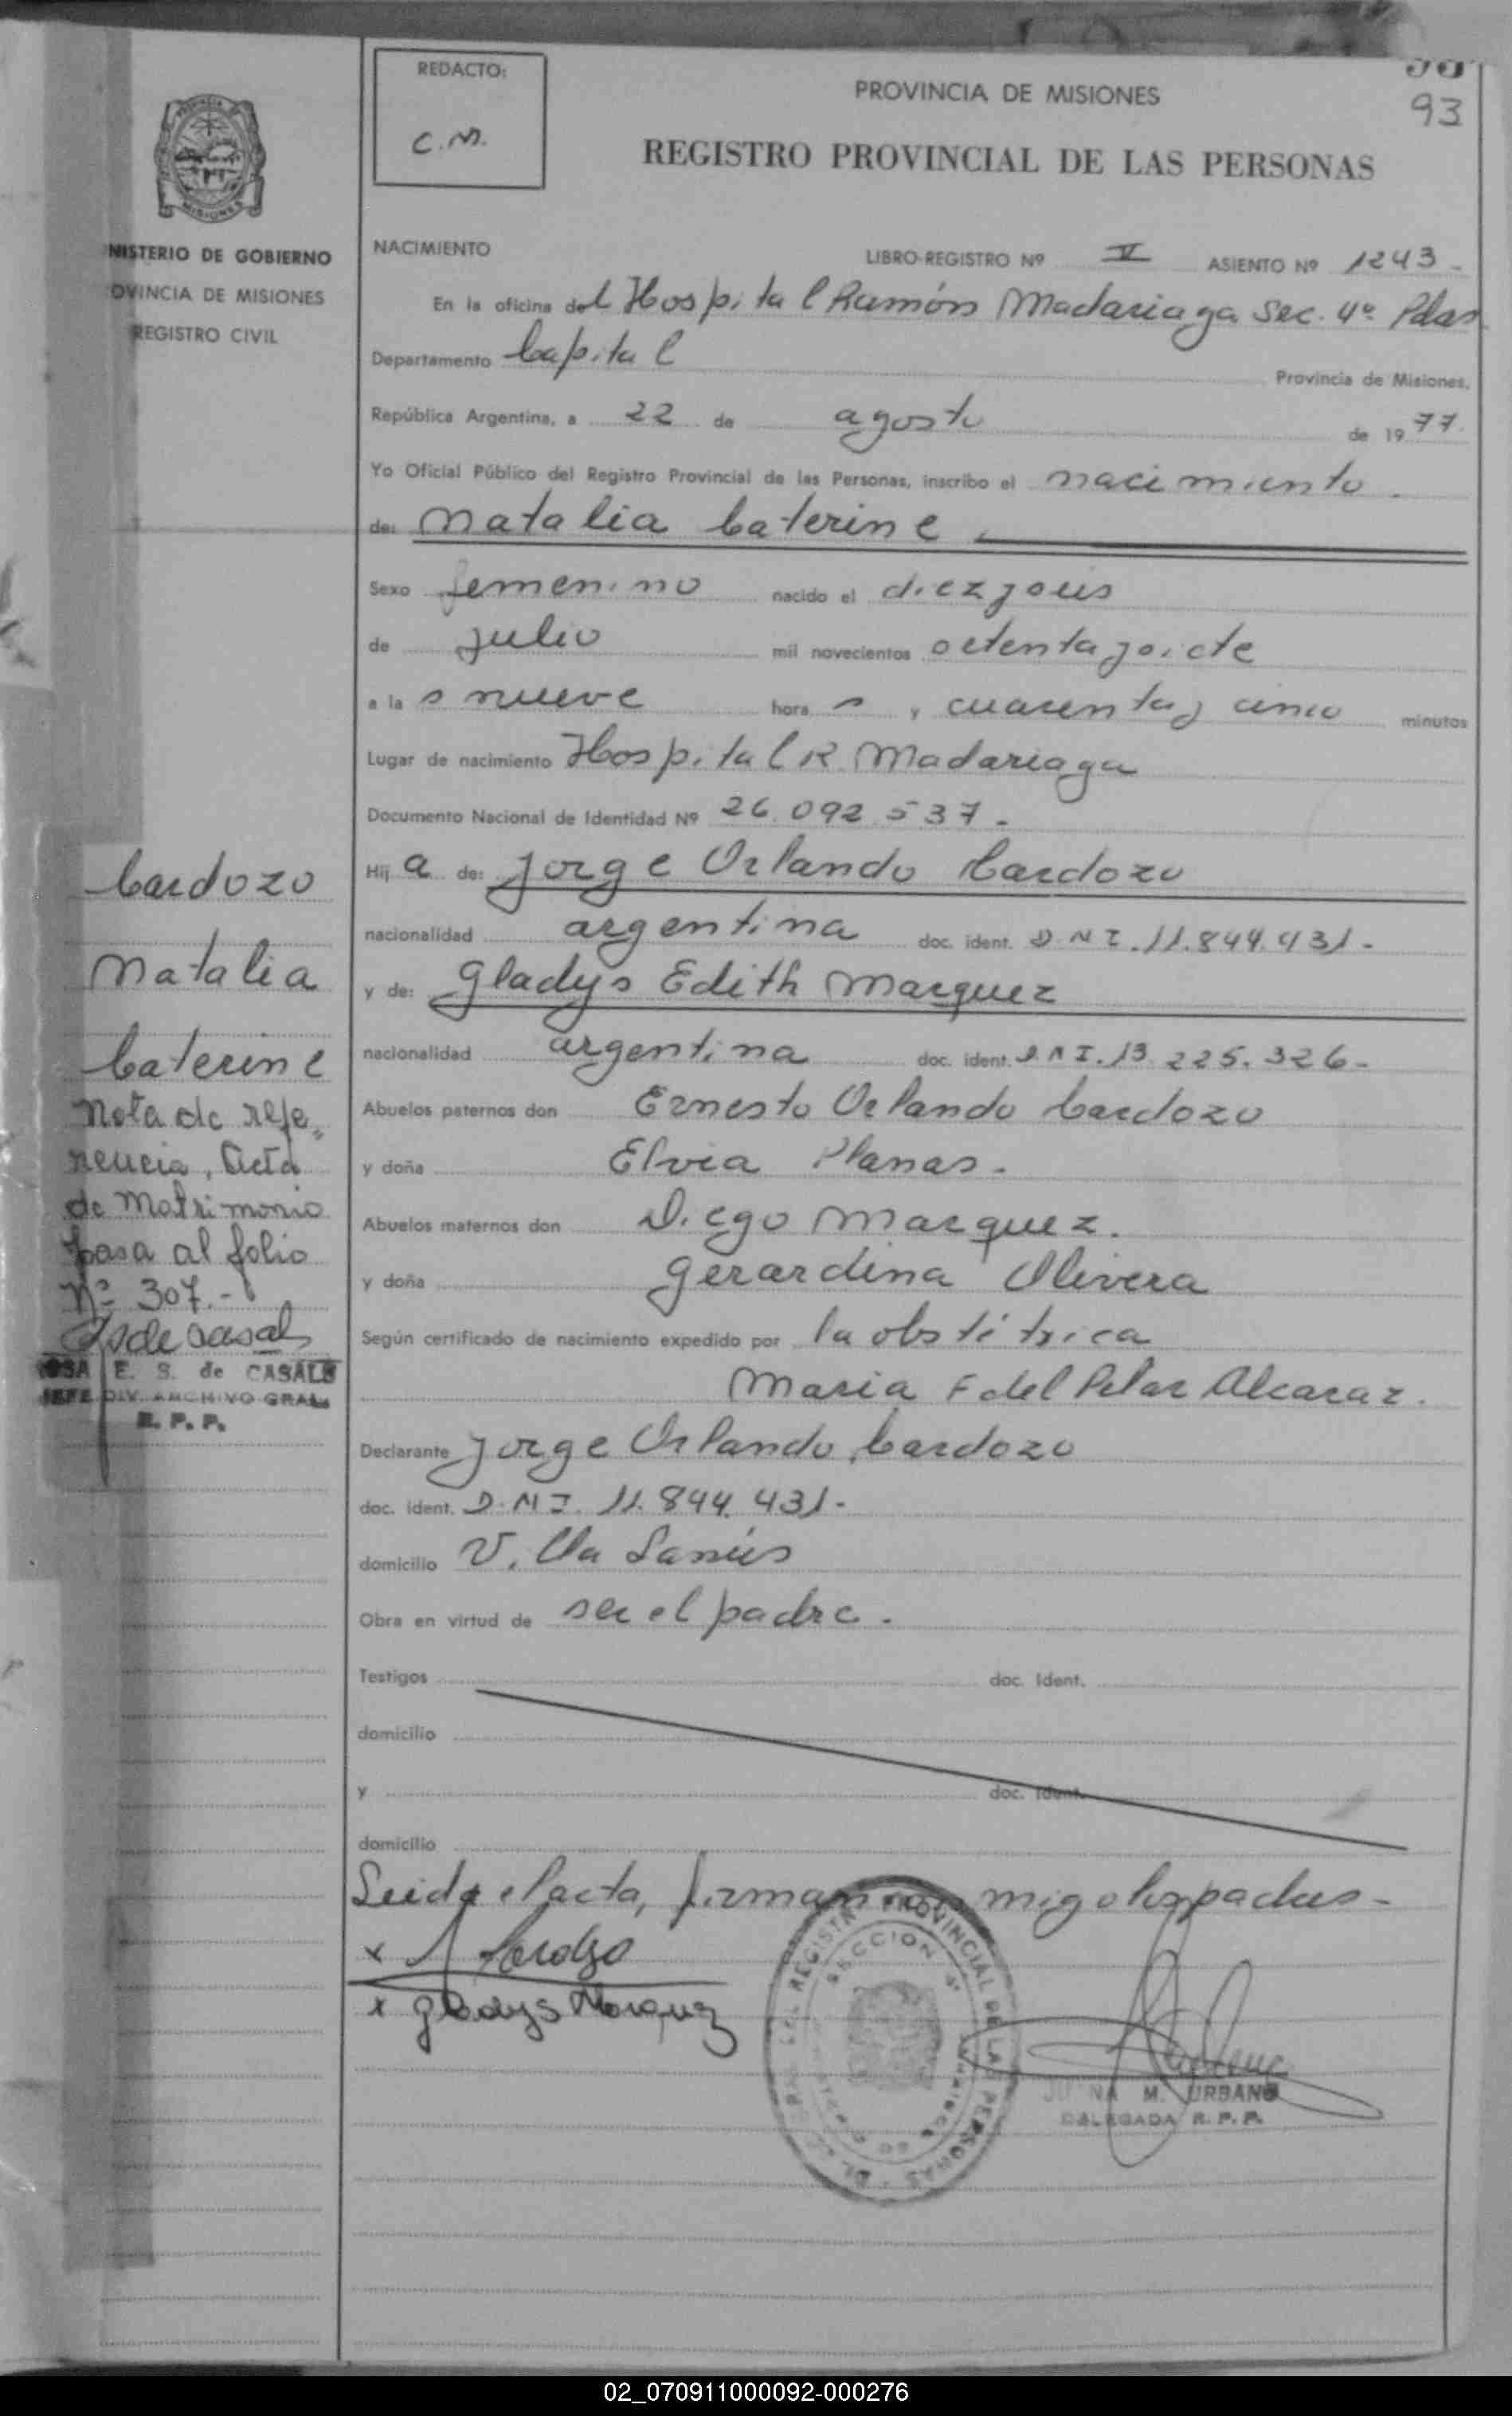 REDACTO:
C.M.
93
PROVINCIA DE MISIONES
REGISTRO PROVINCIAL DE LAS PERSONAS
MISIONES
NISTERIO DE GOBIERNO
OVINCIA DE MISIONES
REGISTRO CIVIL
NACIMIENTO LIBRO-REGISTRO Nº V ASIENTO Nº 1243-
En la oficina del Hospital Ramón Madariaga Sec. 4º Pdas
Departamento Capital Provincia de Misiones.
República Argentina, a 22 de agosto de 1977.
Yo Oficial Público del Registro Provincial de las Personas, inscribo el nacimiento.
de: Natalia Caterine
Sexo femenino nacido el diez y seis
de julio mil novecientos setenta y siete
a las nueve horas y cuarenta y cinco minutos
Lugar de nacimiento Hospital R. Madariaga
Documento Nacional de Identidad Nº 26.092.537.-
Hija de: Jorge Orlando Cardozo
nacionalidad argentina doc. ident. D.N.I. 11.844.431.-
y de: Gladys Edith Marquez
nacionalidad argentina doc. ident. D.N.I. 13.225.326-
Abuelos paternos don Ernesto Orlando Cardozo
y doña Elvia Planas.
Abuelos maternos don Diego Marquez.
y doña Gerardina Olivera
Según certificado de nacimiento expedido por la obstétrica
Maria F del Pilar Alcaraz.
Declarante Jorge Orlando Cardozo
doc. ident. D.N.I. 11.844.431.-
domicilio Villa Lanús
Obra en virtud de ser el padre.
Testigos doc. Ident.
domicilio
y doc. Ident.
domicilio
Leida el acta, firman conmigo los padres-
x Cardozo
x Gladys Marquez
REGISTRO PROVINCIAL DE LAS PERSONAS
SECCION 4ª
M. URBANO
DELEGADA R. P. P.
Cardozo
Natalia
Caterine
Nota de refe-
rencia, Acta
de Matrimonio
pasa al folio
Nº 307.-
E. S. de CASALS
JEFE DIV. ARCHIVO GRAL.
R. P. P.
02_070911000092-000276